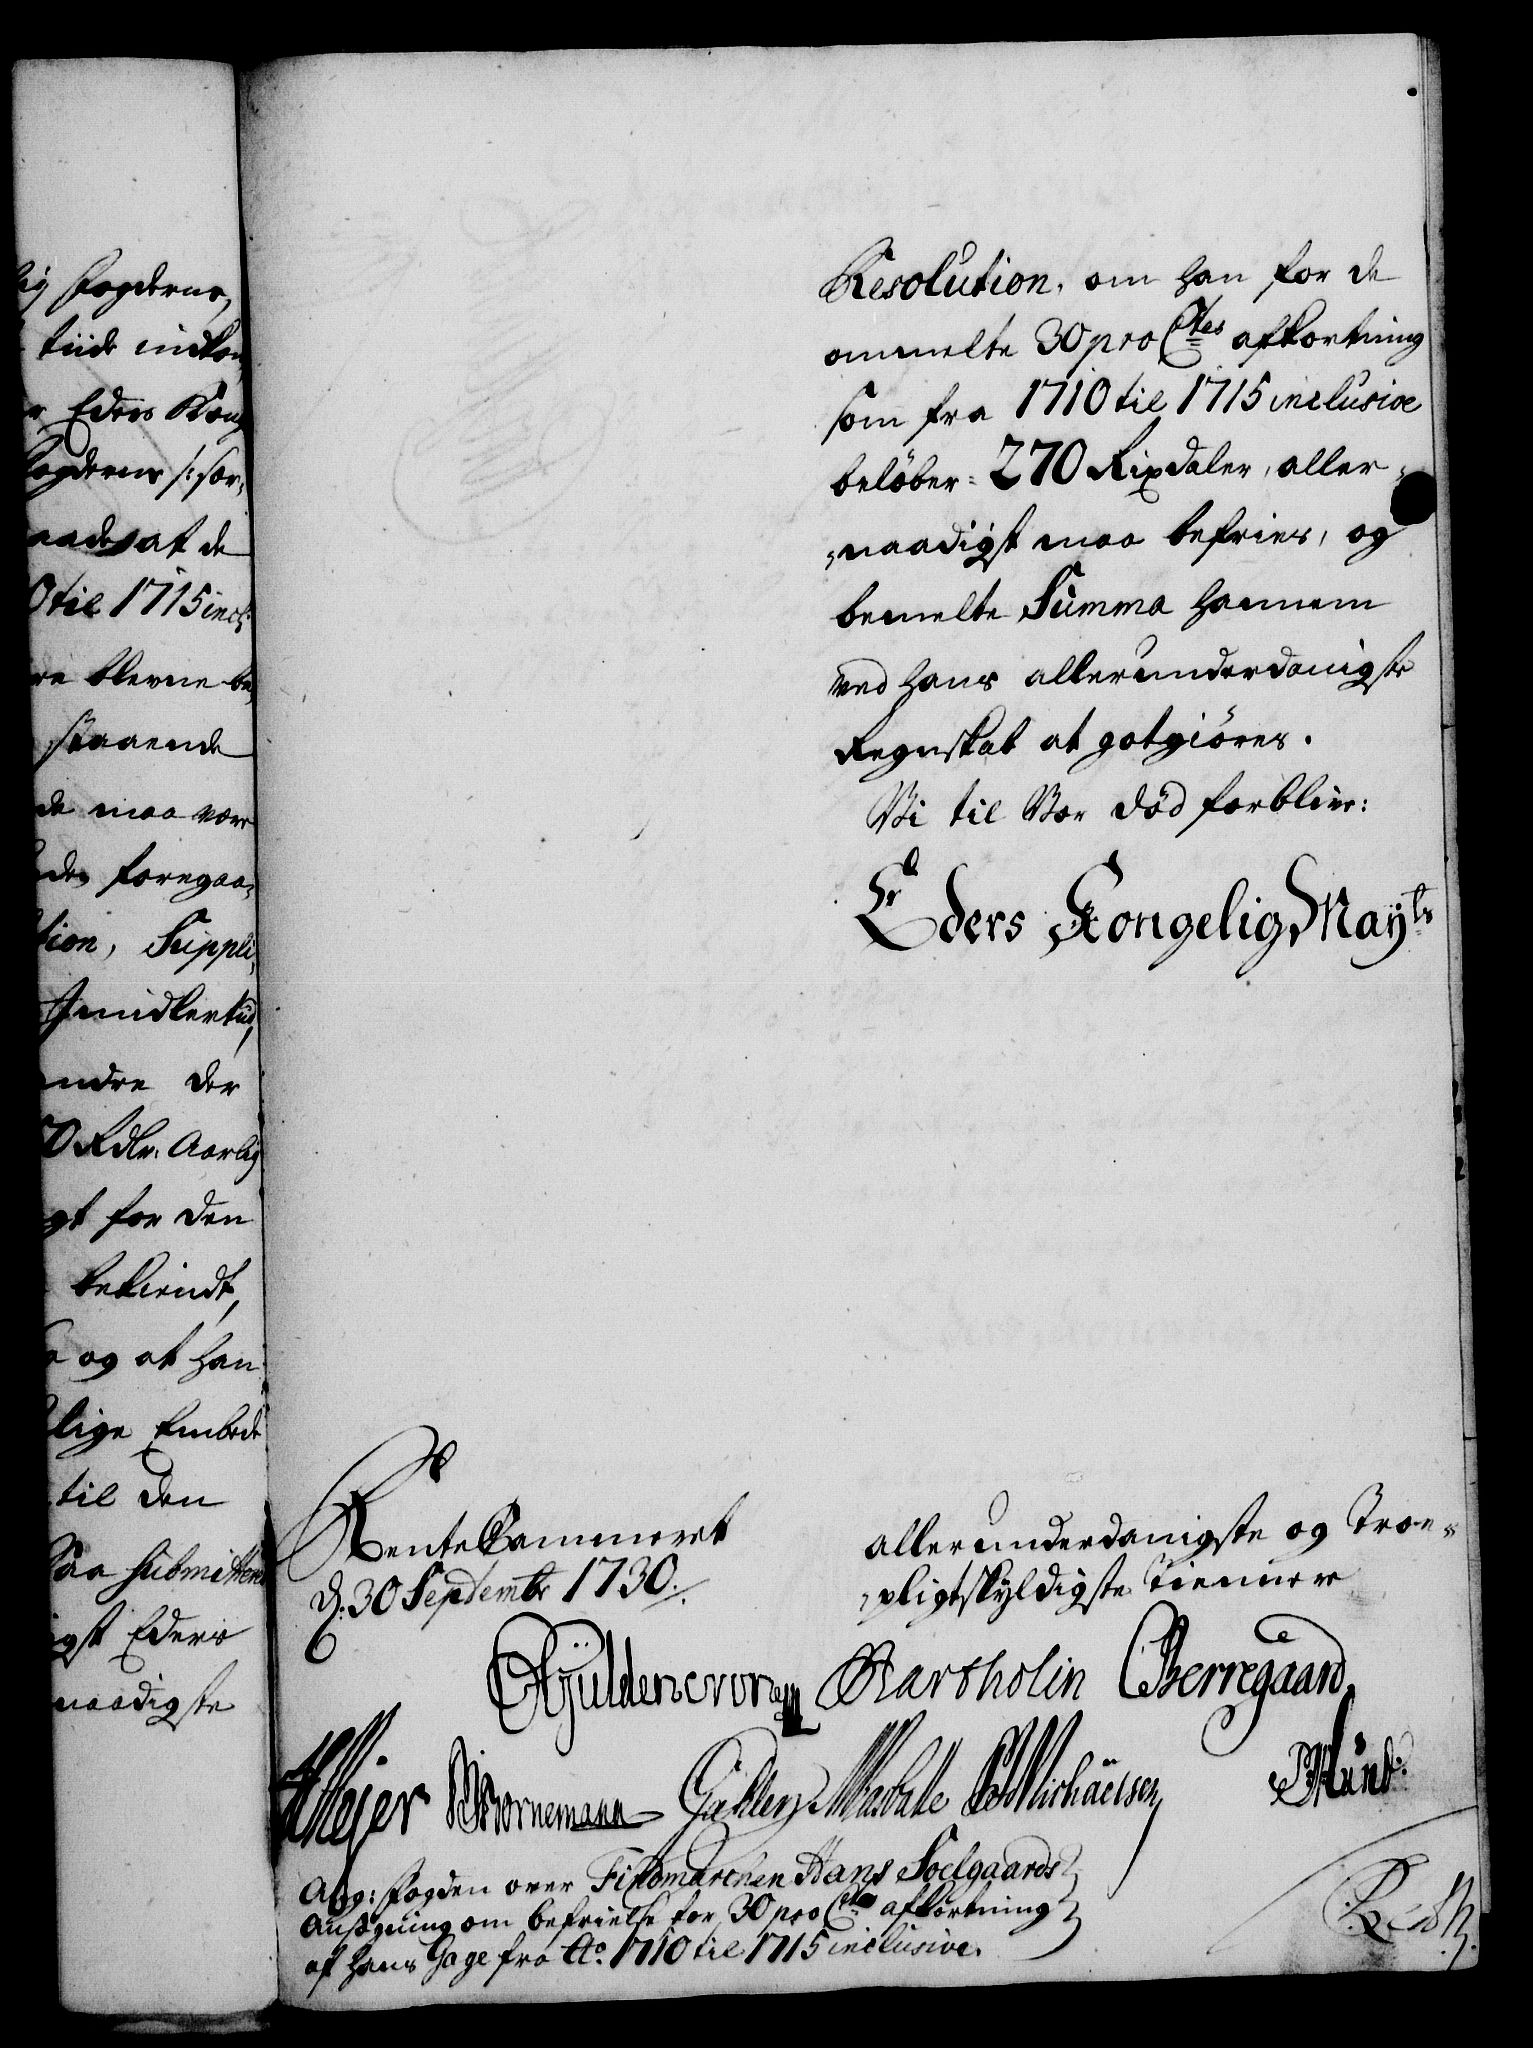 ig fogderne,
tiide indkom,
r Eders Kong
fogderne /: for,
aades at de
0 til 1715 incl:
re blevne be,
staaende
de maa være
des foregaa,
tion, Suppli,
Imidlertiid,
andre der
0 Rdlr: Aarlig
gt for den
bekiendt,
og at han
lige Embede
til den
saa submittere
igst Eders
naadigste
Resolution, om han for de
ommelte 30 pro Ctes afkortning
som fra 1710 til 1715 inclusive
belöber: 270 Rixdaler, aller=
=naadigst maa befries, og
bemelte Summa hannem
ved hans allerunderdanigste
Regnskab at gotgiöres.
Vi til Vor död forblive:
Eders Kongelig May:ts
RenteCammeret
d: 30 Septembr 1730.
allerunderdanigste og Troe=
=pligtskyldigste Tiennere
Gÿldencrone Bartholin Berregaard
Mejer Bornemann Gähler Masballe Michäelsen Munk:
Ang: fogden over Findmarchen Hans Soelgaards
ansøgning om befrielse for 30 pro Cto afkortning
af hans Gage fra Ao: 1710 til 1715 inclusive.